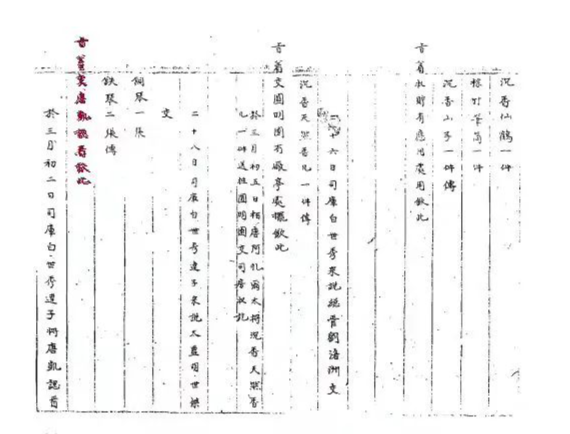 沉香仙鶴一件
棕竹筆筒一件
沉香山子一件傳
旨着收貯有應用處用欽此
六日司庫白世秀來說總管劉滄洲交
沉香天然香几一件傳
旨着交圓明園有敞亭處擺欽此
於三月初五日栢唐阿扎爾太將沉香天然香
几一件送往圓明園交司房收訖
二十八日司庫白世秀達子來說太監胡世傑
交
銅琴一張
鉄琴二張傳
旨着交唐凱認看欽此
於三月初二日司庫白世秀達子將唐凱認看